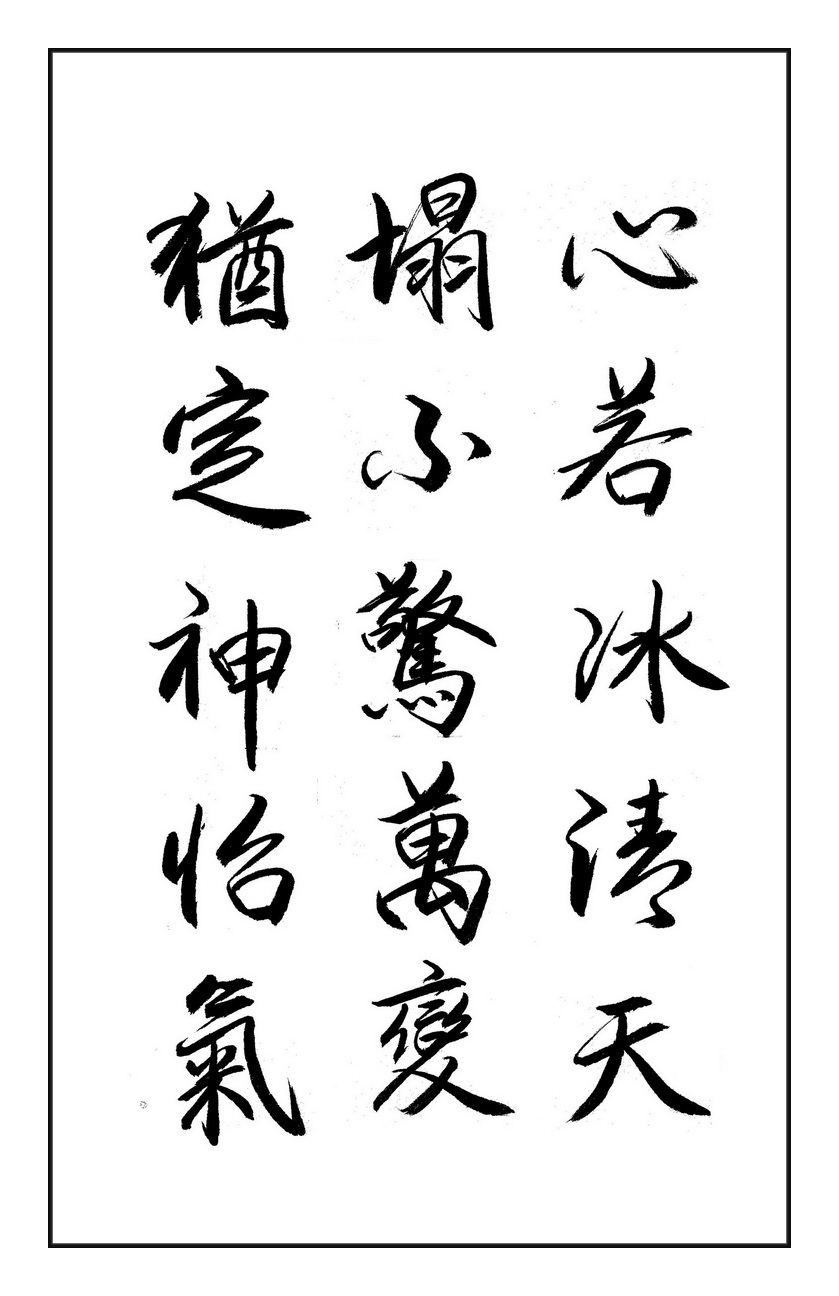 心若冰清天
塌不驚萬變
猶定神怡氣